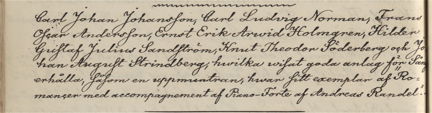 Carl Johan Johansson, Carl Ludvig Norman, Frans
Oscar Andersson, Ernst Erik Arvid Holmgren, Hilder
Gustaf Julius Sandström, Knut Theodor Söderberg och Jo-
han August Strindberg, hwilka wisat goda anlag för Sång
erhålla, såsom en uppmuntran, hwar sitt exemplar af Ro-
manser med accompagnement af Piano-Forte af Andreas Randel.